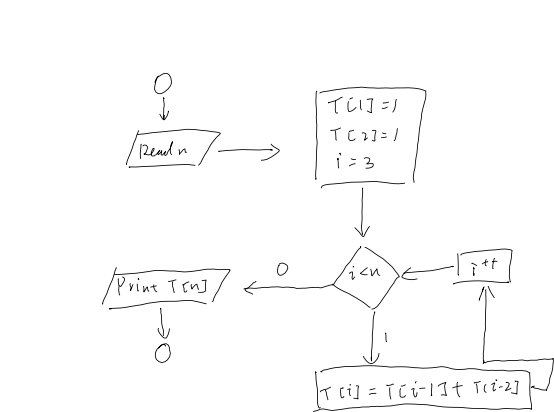 Read n
T[1]=1
T[2]=1
i=3
i<n
0
i++
Print T[n]
1
T[i]=T[i-1]+T[i-2]